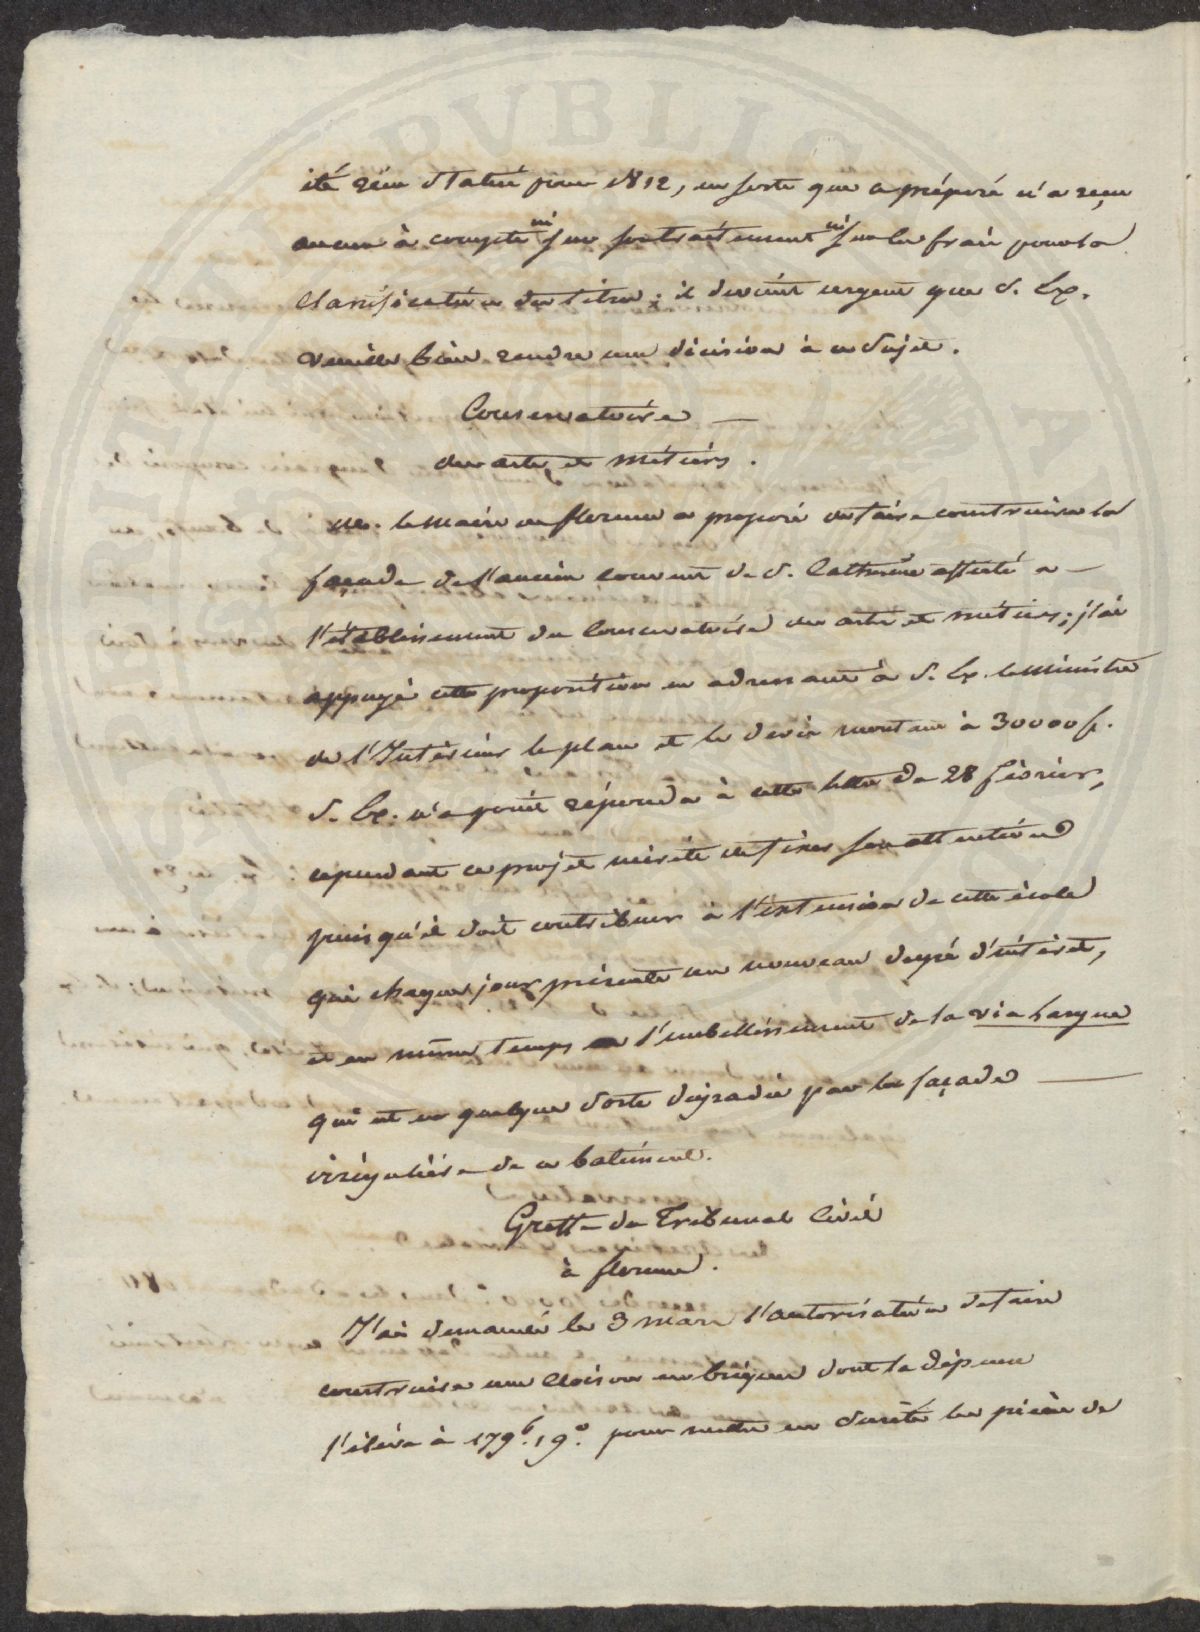 été rien statué pour 1812, en sorte que ce préposé n'a reçu
aucun à compte ni sur son traitement ni sur les frais pour la
Clarification des titres; il devient urgent que S. Ex.
veuille bien rendre une décision à ce sujet.
Conservatoire —
des arts et métiers.
M. le Maire de florence a proposé de faire construire la
façade de l'ancien couvent de S. Catherine affecté a —
l'établissement du Conservatoire des arts et métiers; j'ai
appuyé cette proposition en adressant à S. Ex. le Ministre
de l'Intérieur le plan et le devis montant à 30000 f.
S. Ex. n'a point répondu à cette lettre du 28 février,
cependant ce projet mérite de fixer son attention
puisqu'il doit contribuer à l'extension de cette école
qui chaque jour présente un nouveau degré d'intérêt,
et en même temps à l'embellissement de la via larque
qui est en quelque sorte dégradée par la façade —
irrégulière de ce batiment.
Greffe du Tribunal Civil
à florence.
J'ai demandé le 3 mars l'autorisation de faire
construire une cloison en briques dont la dépense
s'élève à 179 f. 19 c. pour mettre en sureté les pièces de
PVBLIC